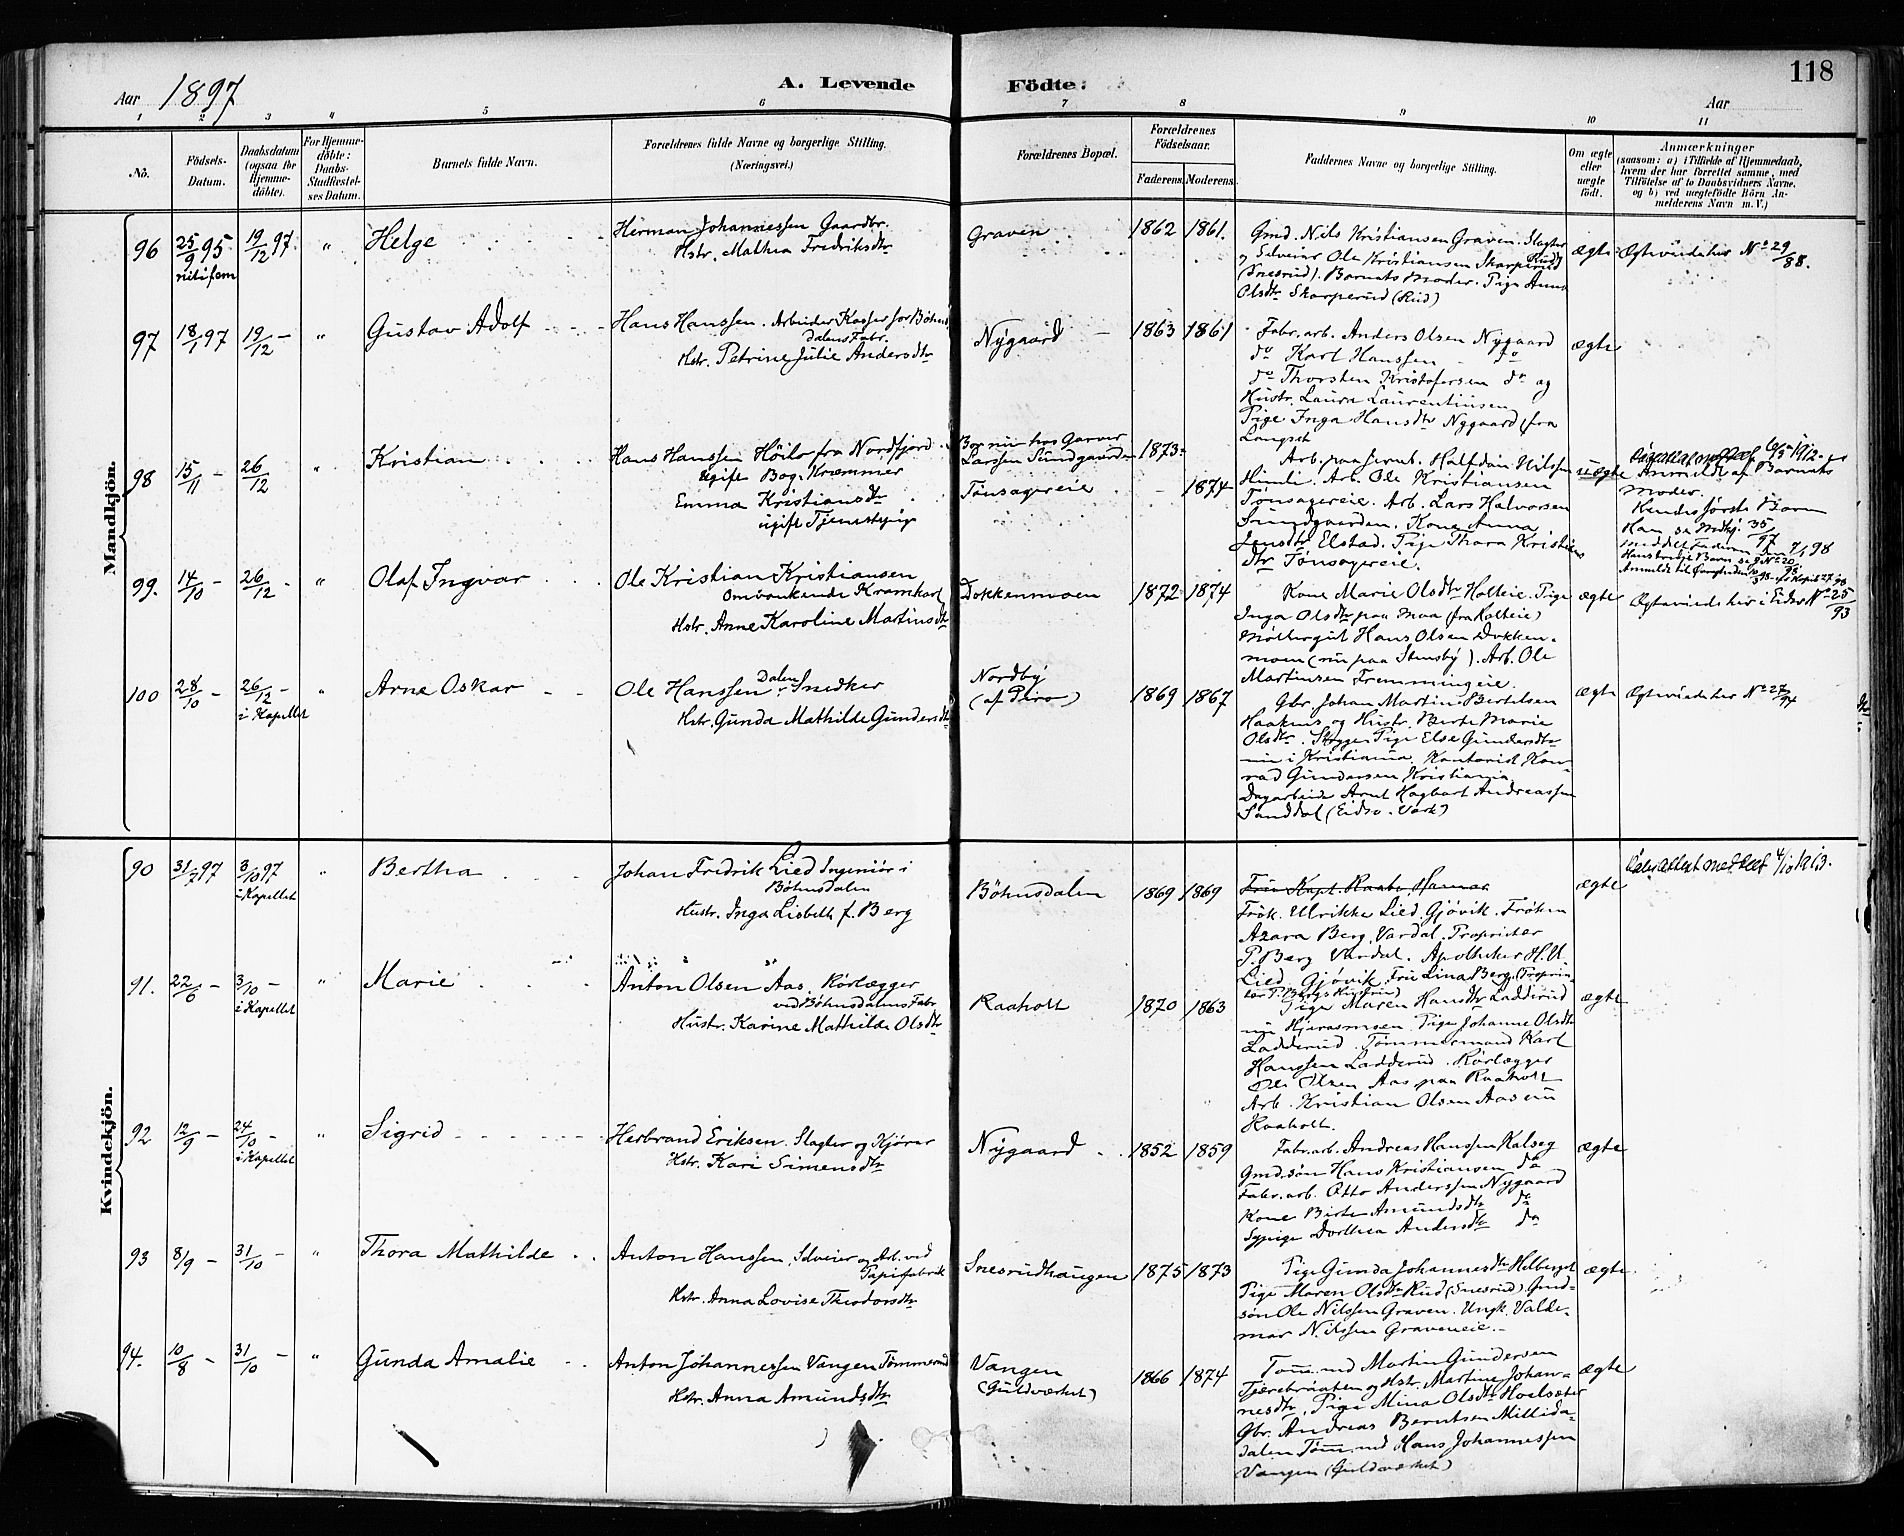 118
Aar 1897
A. Levende Födte:
Aar
1 2 3 4 5 6 7 8 9 10 11
No.
Födsels-Datum.
Daabsdatum (ogsaa for Hjemmedöbte).
For Hjemmedöbte: Daabs-Stadfæstelses Datum.
Barnets fulde Navn.
Forældrenes fulde Navne og borgerlige Stilling. (Næringsvei.)
Forældrenes Bopæl.
Forældrenes Födselsaar.
Faderens. Moderens.
Faddernes Navne og borgerlige Stilling.
Om ægte eller uægte födt.
Anmærkninger
(saasom: a) i Tilfælde af Hjemmedaab,
hvem der har forrettet samme, med
Tilföielse af to Daabsvidners Navne,
og b) ved uægtefödte Börn An-
melderens Navn m. V.)
Mandkjön.
96 25/9 95 19/12 97. " Helge
Herman Johannessen Gaardbr.
Hstr. Mathea Fredriksdtr
Graven 1862 1861.
Gmd. Nils Kristiansen Graven. Slagter
og Selveier Ole Kristiansen Skarperud
(Snesrud). Barnets Moder. Pige Anna
Olsdtr Skarperud (Rud)
ægte
Ægteviedes her No 29/88.
97 18/1 97 19/12 - " Gustav Adolf
Hans Hanssen. Arbeider Kasser for Böhns
dalens Fabr.
Hstr. Petrine Julie Andersdtr
Nygaard 1863 1861
Fabr. arb. Anders Olsen Nygaard
do Karl Hanssen do
do Thorsten Kristofersen do og
Hustr. Laura Laurentiusen
Pige Inga Hansdtr Nygaard (fra
Langset
ægte
98 15/11 - 26/12 " Kristian
Hans Hanssen Höilo fra Nordfjord
ugift Bog. Kræmmer
Emma Kristiansdtr
ugift Tjenestepige
Bor nu hos Garver
Larssen Sundgaarden 1873
Tönsagereie 1874
Arb. paa Jernb. Halfdan Nilssen
Himli. Arb. Ole Kristiansen
Tönsagereie. Arb. Lars Halvorsen
Sundgaarden. Kone Anna
Jensdtr Elstad. Pige Thora Kristians
dtr Tönsagereie.
uægte
6/5 1912
Anmeldt af Barnets
Moder.
Hendes förste Barn
Han se Mdkj. 35/97
99. 14/10 - 26/12 - " Olaf Ingvar
Ole Kristian Kristiansen
Omvankende Kramkarl
Hstr. Anne Karoline Martinsdtr
Dokkenmoen 1872 1874
Kone Marie Olsdtr Holteie. Pige
Inga Olsdtr paa Moa (fra Holteie)
Möllergut Hans Olsen Dokken-
moen (nu paa Stensby). Arb. Ole
Martinsen Fremmingeie.
ægte
Ægteviedes her i Eidsv No 25/93
100 28/10 - 26/12 - i Kapellet " Arne Oskar
Ole Hanssen Dalen Snedker
Hstr. Gunda Mathilde Gundersdtr
Nordby
1869 1867
Gbr. Johan Martin Bertelsen
Haaknes og Hustr. Berte Marie
Olsdtr. Pige Else Gundersdtr
nu i Kristiania. Kontorist Kon-
rad Gundersen Kristiania
Dagarbeider Arnt Hagbart Andreassen
Sanddal (Eidsv. Værk)
ægte
Ægteviedes her No 27/94
Kvindekjön.
90 31/7 97 3/10 97 i Kapellet " Bertha
Johan Fredrik Lied Ingeniör i
Böhnsdalen
Hustr. Inga Lisbeth f. Berg
Böhnsdalen 1869 1869
Fru Kapt. Raabe Hamar
Frök. Ulrikke Lied. Gjövik. Fröken
Azara Berg. Vardal. Proprietær
P. Berg Vardal. Apotheker H. U.
Lied Gjövik. Fru Lina Berg (Proprie-
tær P. Bergs Hustru)
ægte
4/10 1913.
91. 22/6 - 3/10 - i Kapellet " Marie
Anton Olsen Aas. Rörlægger
ved Böhnsdalens Fabr
Hustr. Karine Mathilde Olsdtr
Raaholt 1870 1863
Pige Maren Hansdtr Ladderud
nu Hjerasmoen Pige Johanne Olsdtr
Ladderud. Tömmermand Karl
Hanssen Ladderud. Rörlægger
Ole Olsen Aas paa Raaholt
Arb. Kristian Olsen Aas nu
Raaholt.
ægte
92 12/9 - 24/10 - i Kapellet " Sigrid
Herbrand Eriksen. Slagter og Kjörer
Hstr. Kari Simensdtr
Nygaard 1852 1859
Fabr. arb. Andreas Hanssen Kalseg
Gmd. sön Hans Kristiansen do
Fabr. arb. Otto Anderssen Nygaard
Kone Birte Amundsdtr do
Sypige Dorthea Andersdtr do
ægte
93 8/9 - 31/10 - " Thora Mathilde
Anton Hanssen, Selveier og Arb. ved
Papirfabrik
Hstr. Anna Lovise Theodorsdtr
Snesrudhaugen 1875 1873
Pige Gunda Johannesdtr Helberget
Pige Maren Olsdtr Rud (Snesrud). Gmd-
sön Ole Nilssen Graven. Ungk. Valde-
mar Nilssen Graveneie.
ægte
94. 10/8 - 31/10 - " Gunda Amalie
Anton Johannessen Vangen Tömmermd
Hstr. Anna Amundsdtr
Vangen
(Guldværket) 1866 1874
Töm. md Martin Gundersen
Tjærebraaten og Hstr. Martine Johan-
nesdtr, Pige Mina Olsdtr Hoelsæter
Gbr. Andreas Berntsen Millida-
dalen Töm. md Hans Johannessen
Vangen (Guldværket)
ægte